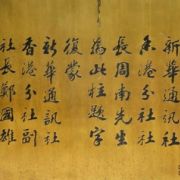 新華通訊社
香港分社
長周南先生
為此柱題字
復蒙
新華通訊社
香港分社副
社長鄭國雄